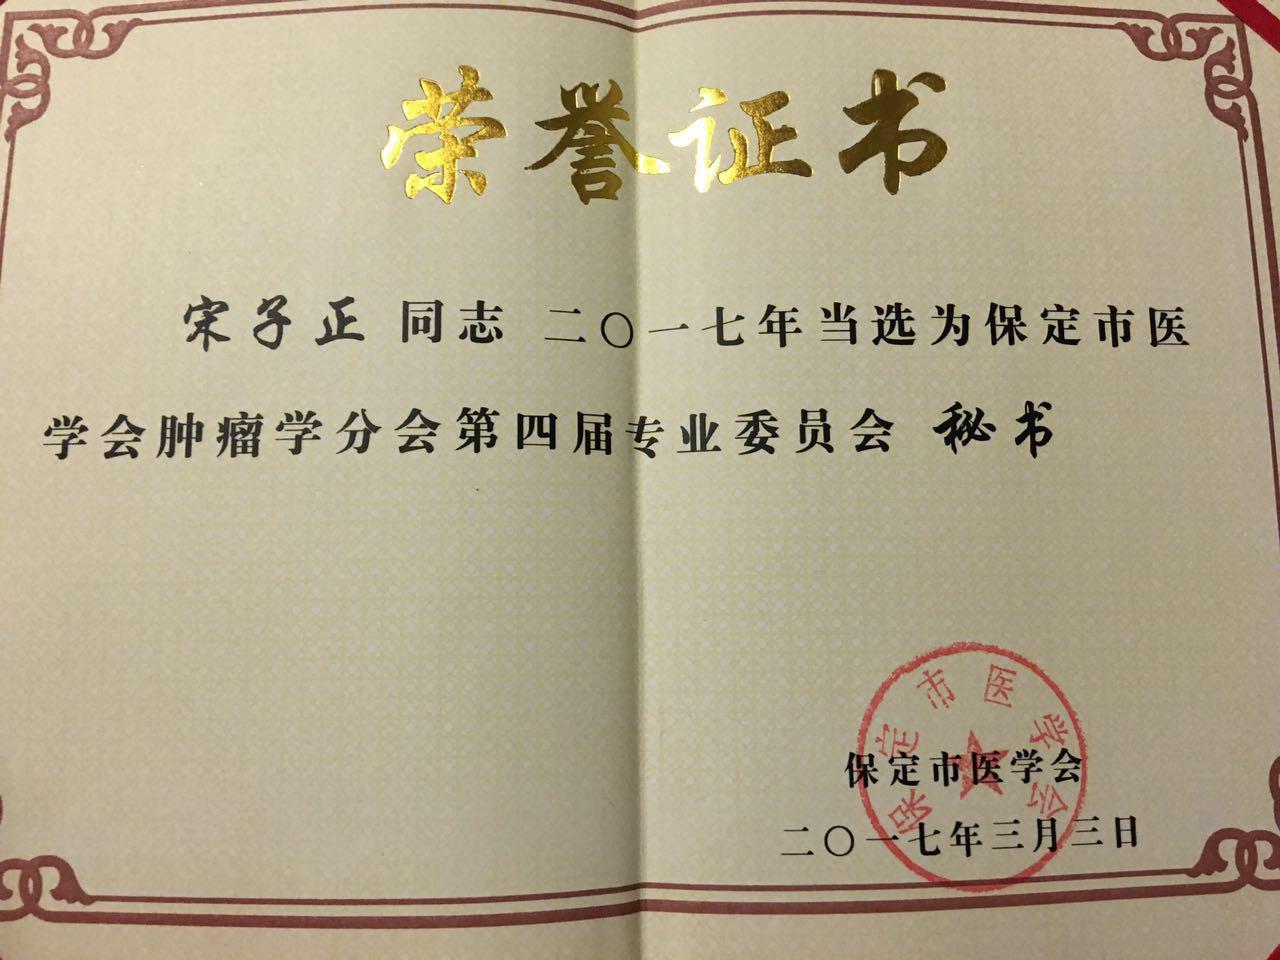 荣誉证书
宋子正 同志 二〇一七年当选为保定市医
学会肿瘤学分会第四届专业委员会 秘书
保定市医学会
保定市医学会
二〇一七年三月三日